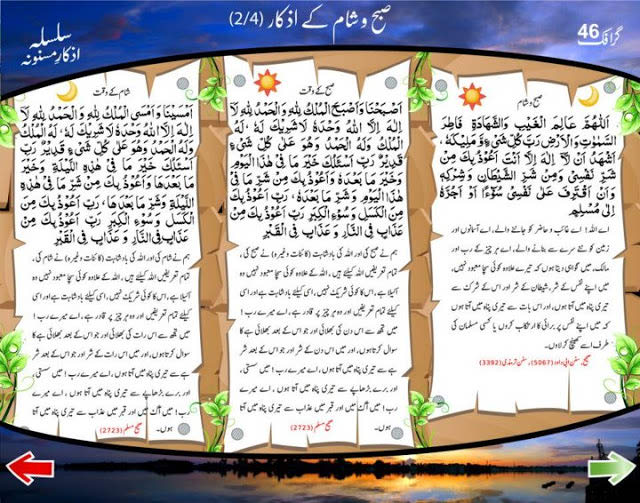 گرافک 46
صبح و شام کے اذکار (2/4)
سلسلہ
اذکارِ مسنونہ
صبح و شام
اَللّٰهُمَّ عَالِمَ الْغَيْبِ وَالشَّهَادَةِ فَاطِرَ
السَّمٰوٰتِ وَالْاَرْضِ رَبَّ كُلِّ شَیْءٍ وَّ مَلِيْكَهٗ ،
اَشْهَدُ اَنْ لَّا اِلٰهَ اِلَّا اَنْتَ اَعُوْذُ بِكَ مِنْ
شَرِّ نَفْسِیْ وَمِنْ شَرِّ الشَّيْطَانِ وَ شِرْكِهٖ
وَاَنْ اَقْتَرِفَ عَلٰی نَفْسِیْ سُوْٓءًا اَوْ اَجُرَّهٗ
اِلٰی مُسْلِمٍ
اے اللہ! اے غائب و حاضر کو جاننے والے، اے آسمانوں اور
زمین کو نئے سرے سے بنانے والے، اے ہر چیز کے رب اور
مالک، میں گواہی دیتا ہوں کہ تیرے علاوہ کوئی سچا معبود نہیں،
میں اپنے نفس کے شر، شیطان کے شر اور اس کے شرک سے
تیری پناہ میں آتا ہوں، اور اس بات سے تیری پناہ میں آتا ہوں
کہ میں اپنے نفس پر برائی کا ارتکاب کروں یا کسی مسلمان کی
طرف اسے کھینچ کر لاؤں۔
صحیح، سنن ابی داود (5067)، سنن ترمذی (3392)
صبح کے وقت
اَصْبَحْنَا وَاَصْبَحَ الْمُلْكُ لِلّٰهِ وَالْحَمْدُ لِلّٰهِ لَآ
اِلٰهَ اِلَّا اللّٰهُ وَحْدَهٗ لَا شَرِيْكَ لَهٗ ، لَهُ
الْمُلْكُ وَلَهُ الْحَمْدُ وَهُوَ عَلٰی كُلِّ شَیْءٍ
قَدِيْرٌ رَبِّ اَسْئَلُكَ خَيْرَ مَا فِیْ هٰذَا الْيَوْمِ
وَخَيْرَ مَا بَعْدَهٗ وَاَعُوْذُ بِكَ مِنْ شَرِّ مَا فِیْ
هٰذَا الْيَوْمِ وَشَرِّ مَا بَعْدَهٗ ، رَبِّ اَعُوْذُ بِكَ
مِنَ الْكَسَلِ وَ سُوْءِ الْكِبَرِ رَبِّ اَعُوْذُ بِكَ مِنْ
عَذَابٍ فِی النَّارِ وَ عَذَابٍ فِی الْقَبْرِ
ہم نے صبح کی اور اللہ کی بادشاہت (کائنات وغیرہ) نے صبح کی،
تمام تعریفیں اللہ کیلئے ہیں، اللہ کے علاوہ کوئی سچا معبود نہیں وہ
اکیلا ہے، اس کا کوئی شریک نہیں، اسی کیلئے بادشاہت ہے اور اسی
کیلئے تمام تعریفیں اور وہ ہر چیز پر قادر ہے، اے میرے رب!
میں تجھ سے اس دن کی بھلائی اور جو اس کے بعد بھلائی ہے کا
سوال کرتا ہوں، اور میں اس دن کے شر اور جو اس کے بعد شر ہے
سے تیری پناہ میں آتا ہوں، اے میرے رب! میں سستی
اور برے بڑھاپے سے تیری پناہ میں آتا ہوں، اے میرے
رب! میں آگ میں اور قبر میں عذاب سے تیری پناہ میں آتا
ہوں۔ صحیح مسلم (2723)
شام کے وقت
اَمْسَيْنَا وَاَمْسَی الْمُلْكُ لِلّٰهِ وَالْحَمْدُ لِلّٰهِ لَآ
اِلٰهَ اِلَّا اللّٰهُ وَحْدَهٗ لَا شَرِيْكَ لَهٗ ، لَهُ الْمُلْكُ
وَلَهُ الْحَمْدُ وَهُوَ عَلٰی كُلِّ شَیْءٍ قَدِيْرٌ رَبِّ
اَسْئَلُكَ خَيْرَ مَا فِیْ هٰذِهِ اللَّيْلَةِ وَخَيْرَ
مَا بَعْدَهَا وَاَعُوْذُ بِكَ مِنْ شَرِّ مَا فِیْ هٰذِهِ
اللَّيْلَةِ وَشَرِّ مَا بَعْدَهَا، رَبِّ اَعُوْذُ بِكَ مِنَ
الْكَسَلِ وَ سُوْءِ الْكِبَرِ رَبِّ اَعُوْذُ بِكَ مِنْ
عَذَابٍ فِی النَّارِ وَ عَذَابٍ فِی الْقَبْرِ
ہم نے شام کی اور اللہ کی بادشاہت (کائنات وغیرہ) نے شام کی،
تمام تعریفیں اللہ کیلئے ہیں، اللہ کے علاوہ کوئی سچا معبود نہیں وہ
اکیلا ہے، اس کا کوئی شریک نہیں، اسی کیلئے بادشاہت ہے اور اسی
کیلئے تمام تعریفیں اور وہ ہر چیز پر قادر ہے، اے میرے رب!
میں تجھ سے اس رات کی بھلائی اور جو اس کے بعد بھلائی ہے کا
سوال کرتا ہوں، اور میں اس رات کے شر اور جو اس کے بعد شر
ہے سے تیری پناہ میں آتا ہوں، اے میرے رب! میں سستی
اور برے بڑھاپے سے تیری پناہ میں آتا ہوں، اے میرے
رب! میں آگ میں اور قبر میں عذاب سے تیری پناہ میں آتا
ہوں۔ صحیح مسلم (2723)